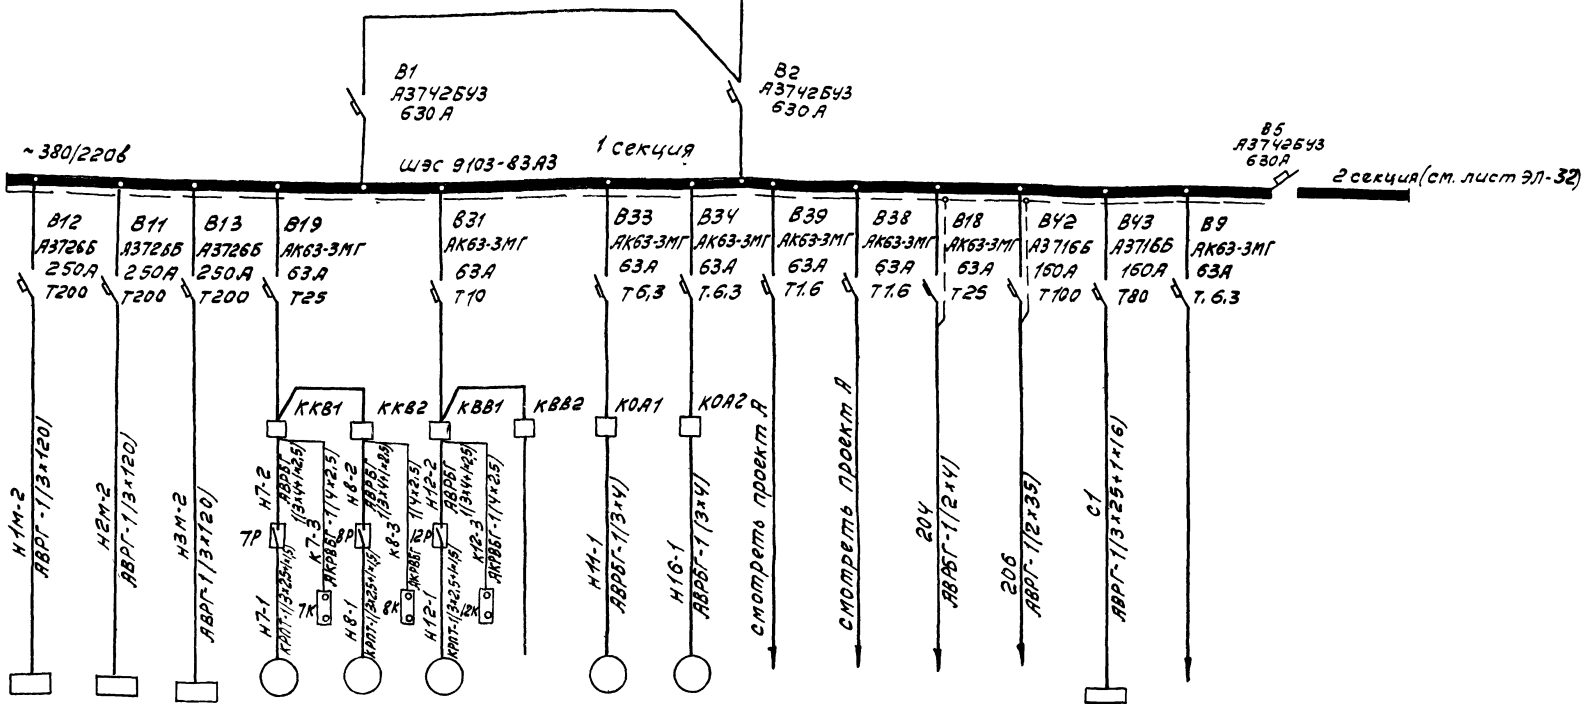 В1
А3742БУЗ
630А
В2
А3742БУЗ
630А
В5
А3742БУЗ
630А
~380/220в
ШЭС 9103-83А3
1 секция
2 секция (см. лист ЭЛ-32)
В12
А3726Б
250А
Т200
В11
А3726Б
250А
Т200
В13
А3726Б
250А
Т200
В19
АК63-3МГ
63А
Т25
В31
АК63-3МГ
63А
Т10
В33
АК63-3МГ
63А
Т6,3
В34
АК63-3МГ
63А
Т.6,3
В39
АК63-3МГ
63А
Т1.6
В38
АК63-3МГ
63А
Т1.6
В18
АК63-3МГ
63А
Т25
В42
А3716Б
160А
Т100
В43
А3716Б
160А
Т80
В9
АК63-3МГ
63А
Т.6,3
ККВ1
ККВ2
КВВ1
КВВ2
КОА1
КОА2
Н1М-2
АВРГ-1(3×120)
Н2М-2
АВРГ-1(3×120)
Н3М-2
АВРГ-1(3×120)
Н7-2
АВРБГ
1(3×4+1×2,5)
7Р
К7-3
АКРВБГ-1(4×2.5)
7К
Н7-1
КРПТ-1(3×2,5+1×1,5)
Н8-2
АВРБГ
1(3×4+1×2,5)
8Р
К8-3
АКРВБГ 1(4×2.5)
8К
Н8-1
КРПТ-1(3×2,5+1×1,5)
Н12-2
АВРБГ
1(3×4+1×2,5)
12Р
К12-3
АКРВБГ-1(4×2.5)
12К
Н12-1
КРПТ-1(3×2,5+1×1,5)
Н11-1
АВРБГ-1(3×4)
Н16-1
АВРБГ-1(3×4)
смотреть проект А
смотреть проект А
204
АВРБГ-1(2×4)
206
АВРГ-1(2×35)
С1
АВРГ-1(3×25+1×16)